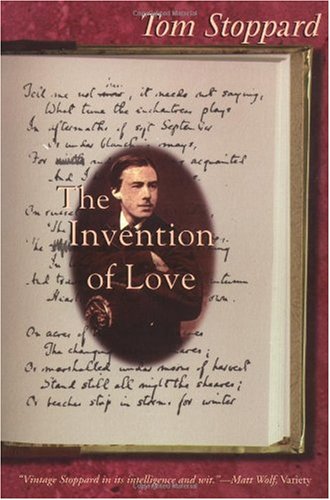 Tom Stoppard
Tell me not here, it needs not saying,
What tune the enchantress plays
In aftermaths of soft September
Or under blanching mays,
For and acquainted
And I
The
Invention
of Love
On russet
The
On acres of
The changing
Or marshalled under moons of harvest
Stand still all night the sheaves;
Or beeches strip in storms for winter
"Vintage Stoppard in its intelligence and wit."—Matt Wolf, Variety